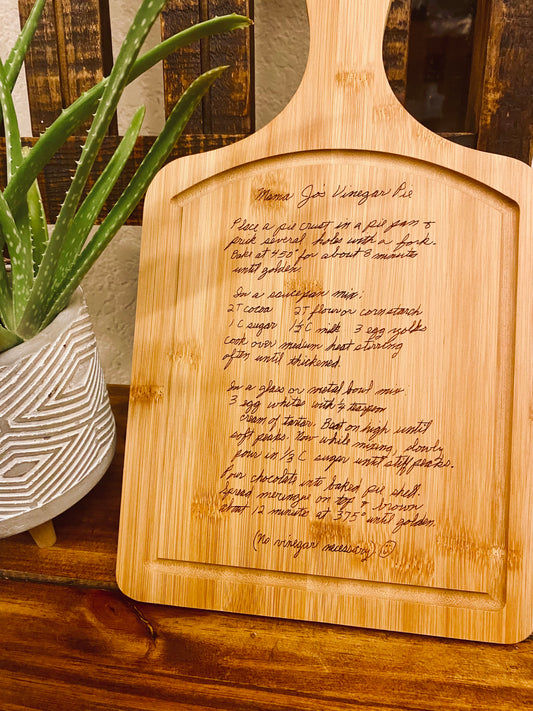 Mama Jo's Vinegar Pie
Place a pie crust in a pie pan &
prick several holes with a fork.
Bake at 450° for about 8 minute
until golden
In a saucepan mix:
2T cocoa 2T flour or cornstarch
1 C sugar 1½ C milk 3 egg yolks
Cook over medium heat stirring
often until thickened.
In a glass or metal bowl mix:
3 egg whites with ¼ teaspoon
cream of tartar. Beat on high until
soft peaks. Now while mixing slowly
pour in ⅓ C sugar until stiff peaks.
Pour chocolate into baked pie shell.
Spread meringue on top & brown
about 12 minute at 375° until golden.
(No vinegar necessary) ☺